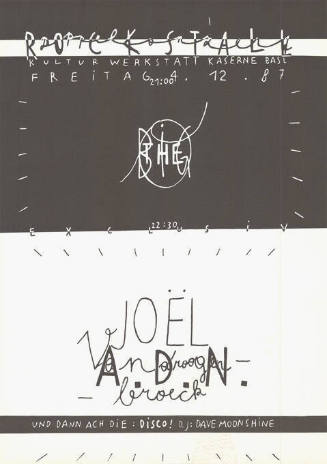 ROCKSTALL
KULTUR WERKSTATT KASERNE BASEL
FREITAG 4. 12. 87
21:00
THE
BIG
22:30
EXCLUSIV
JOËL
Vandroogen-
broeck
A.D.N.
UND DANN ACH DIE : DISCO! DJ: DAVE MOONSHINE